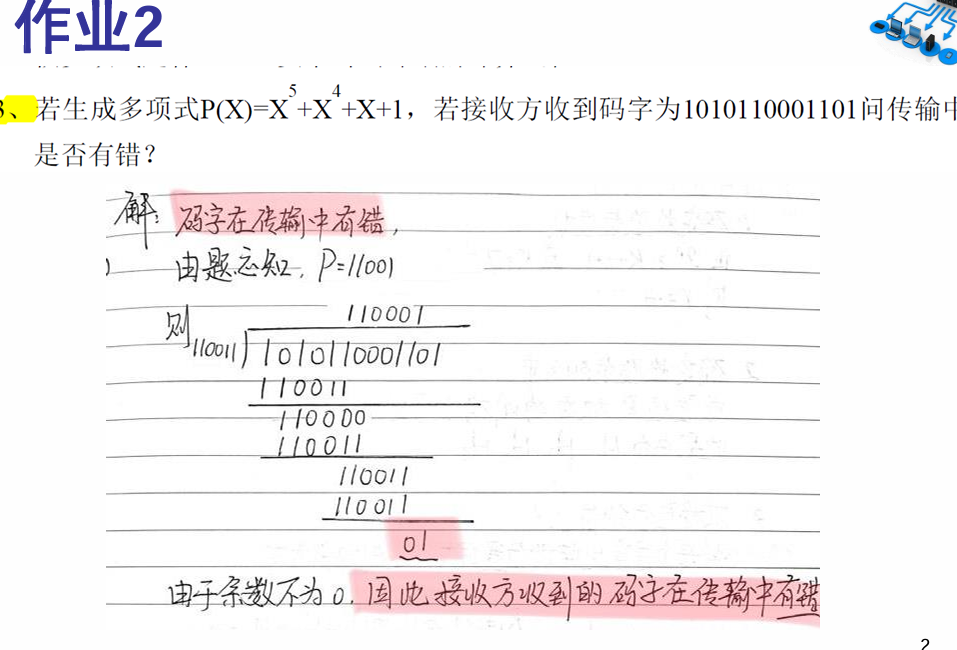 作业2
3、若生成多项式P(X)=X⁵+X⁴+X+1，若接收方收到码字为1010110001101问传输中
是否有错？
解：码字在传输中有错，
由题意知，P=11001
则 110001
110011 1010110001101
110011
110000
110011
110011
110011
01
由于余数不为0，因此接收方收到的码字在传输中有错
2